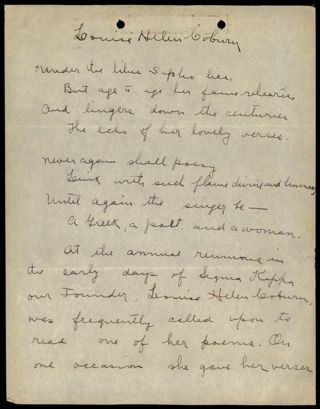 Louise Helen Coburn
Under the lilies Sappho lies.
But age to age her fame rehearses,
And lingers down the centuries
The echo of her lovely verses.
Never again shall poesy
Link with such flame divine and human,
Until again the singer be—
A Greek, a poet, and a woman.
At the annual reunions in
the early days of Sigma Kappa
our Founder, Louise Helen Coburn,
was frequently called upon to
read one of her poems. On
one occasion she gave her verses